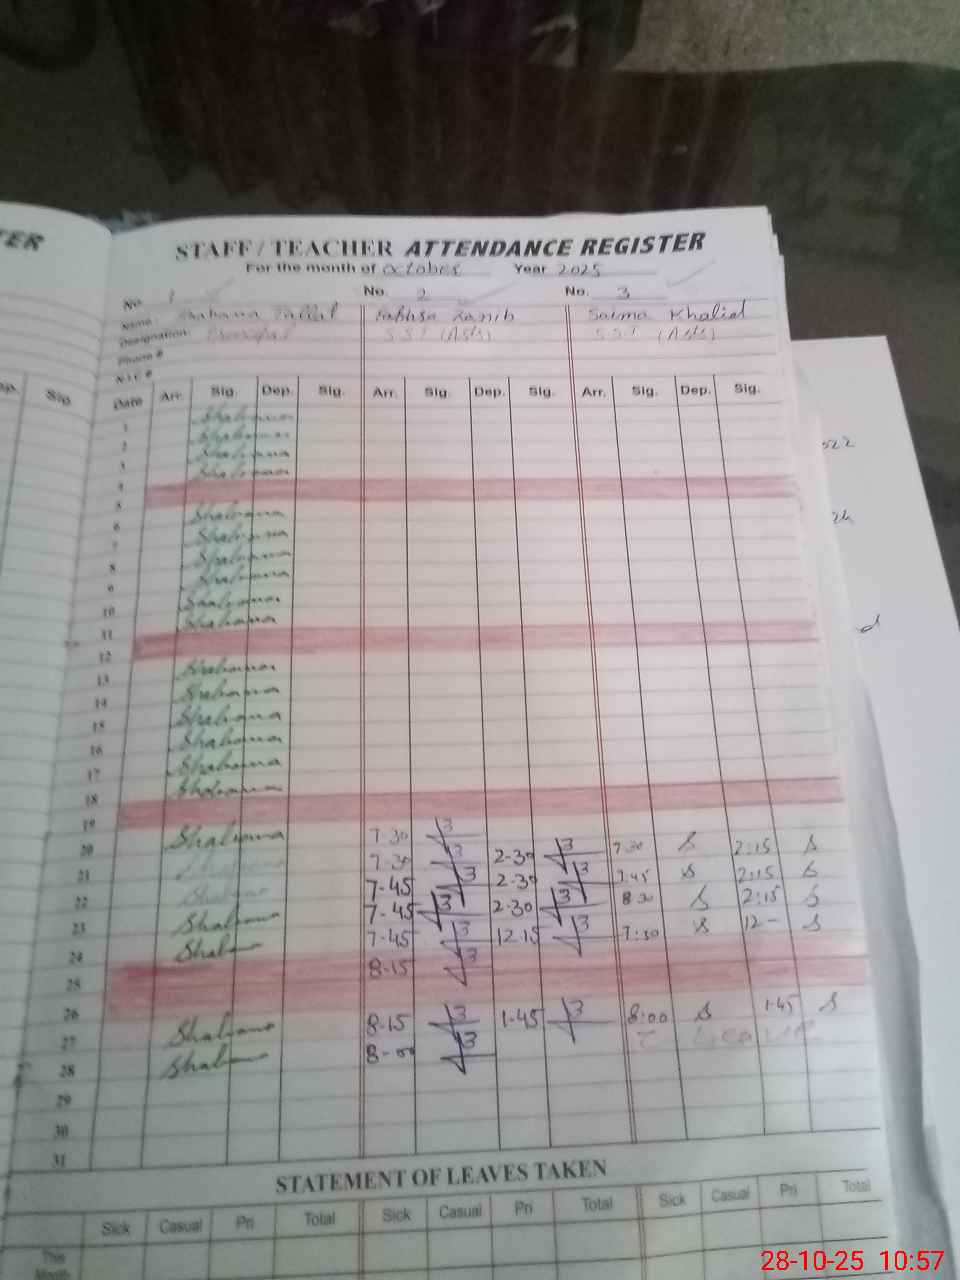 TER
STAFF / TEACHER ATTENDANCE REGISTER
For the month of October Year 2025
No. 1 No. 2 No. 3
Name: Shahana Tallal Zanib Saima Khalid
Designation: Principal S.S.T (Arts) S.S.T (Arts)
Phone #
N.I.C #
Sig.
Date Arr. Sig. Dep. Sig. Arr. Sig. Dep. Sig. Arr. Sig. Dep. Sig.
1 Shahana
2 Shahana
3 Shahana
4 Shahana
5
6 Shahana
7 Shahana
8 Shahana
9 Shahana
10 Shahana
11 Shahana
12
13 Shahana
14 Shahana
15 Shahana
16 Shahana
17 Shahana
18 Shahana
19
20 Shahana 7-30 2-30 7-30 S 2:15 S
21 7-30 2-30 7-45 S 2:15 S
22 Shahana 7-45 2-30 8-30 S 2:15 S
23 Shahana 7-45 12-15 7:30 S 12- S
24 Shahana 7-45
25 8-15
26
27 Shahana 8-15 1-45 8:00 S 1-45 S
28 Shahana 8-00 Leave
29
30
31
STATEMENT OF LEAVES TAKEN
Sick Casual Pri Total Sick Casual Pri Total Sick Casual Pri Total
This
Month
522
24
d
28-10-25 10:57